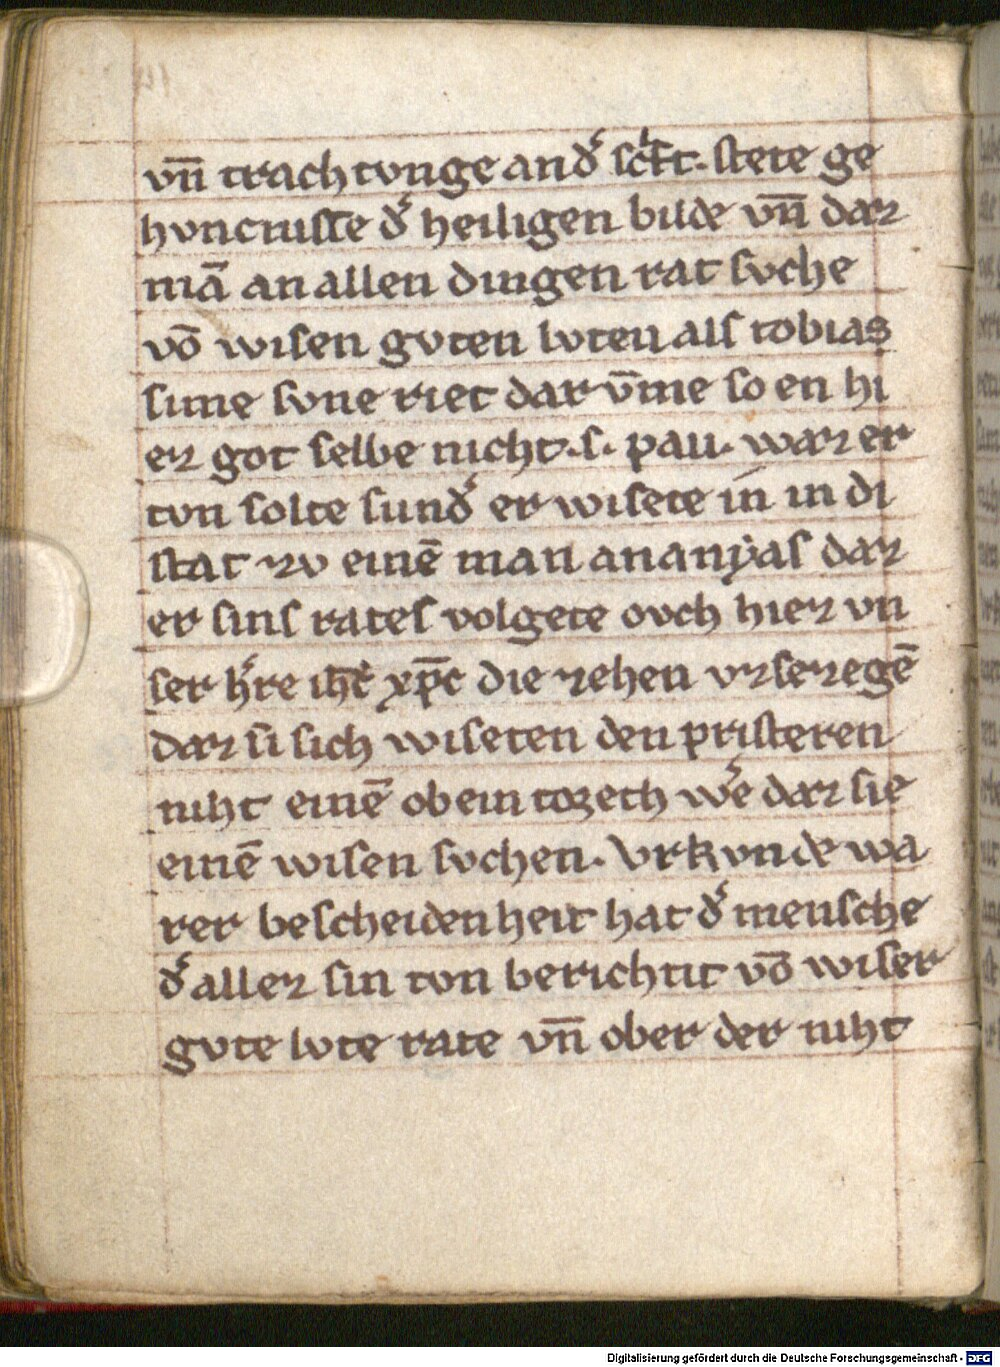 vn̄ trachtvnge and᷑ sc᷑ft. stete ge
hvncnisse d᷑ heiligen bilde vn̄ daz
mā an allen dingen rat svche
vō wisen gvten lvten als tobias
sime svne riet dar vm̄e so en hi
ez got selbe nicht .s. pau. waz er
tvn solte sund᷑ er wisete in in di
stat zv einē man ananẏas daz
er sins rates volgete ovch hiez vn
ser h᷑re ih̄c xp̄c die zehen vzsezegē
daz si sich wiseten den pristeren
niht einē ob ein torech w᷑e daz sie
einē wisen svchen. Vrkvnde wa
rer bescheidenheit hat d᷑ mensche
d᷑ allez sin tvn berichtit vō wiser
gvte lvte rate vn̄ ober der niht
Digitalisierung gefördert durch die Deutsche Forschungsgemeinschaft - DFG